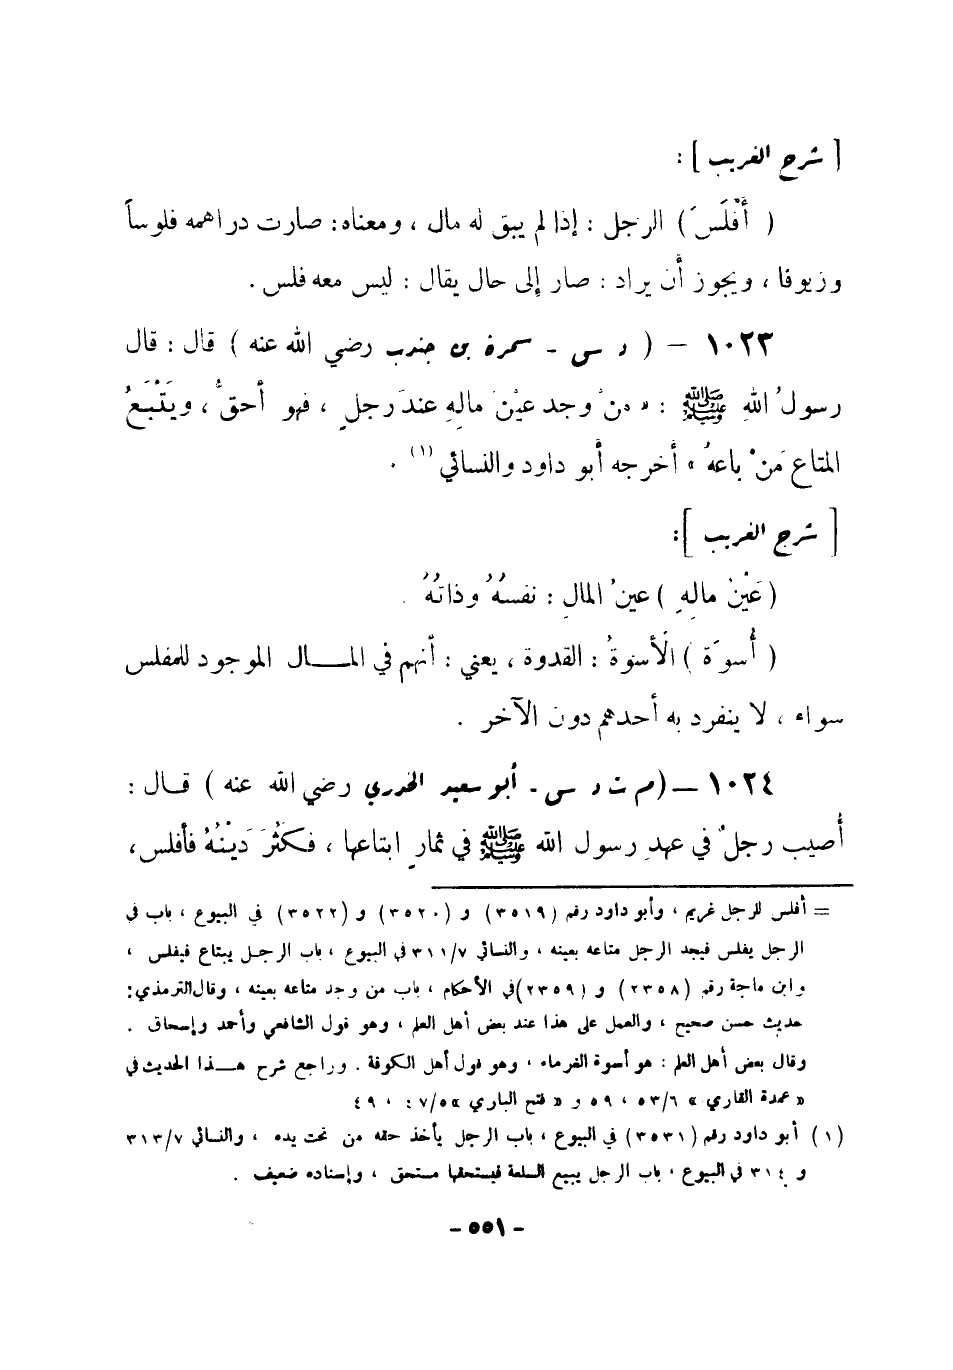 [ شرح الغريب ] :
( أَفْلَسَ ) الرجل : إذا لم يبق له مال ، ومعناه : صارت دراهمه فلوساً
وزيوفا ، ويجوز أن يراد : صار إلى حال يقال : ليس معه فلس .
١٠٢٣ – ( د س - سمرة بن جندب رضي الله عنه ) قال : قال
رسولُ اللهِ ﷺ : « مَنْ وجد عَيْنَ مالِهِ عندَ رجلٍ ، فهو أحقُّ ، ويَتْبَعُ
المتاع مَنْ باعهُ » أخرجه أبو داود والنسائي (١) .
[ شرح الغريب ] :
( عَيْنُ مالِهِ ) عينُ المالِ : نفسُهُ وذاتُهُ .
( أُسوَة ) الأسوةُ : القدوة ، يعني : أنهم في المــال الموجود للمفلس
سواء ، لا ينفرد به أحدهم دون الآخر .
١٠٢٤ – ( م ت د س - أبو سعيد الخدري رضي الله عنه ) قـال :
أُصيب رجلٌ في عهدِ رسول الله ﷺ في ثمارٍ ابتاعها ، فَكَثُرَ دَيْنُهُ فأفلس ،
= أفلس للرجل غريم ، وأبو داود رقم (٣٥١٩) و (٣٥٢٠) و (٣٥٢٢) في البيوع ، باب في
الرجل يفلس فيجد الرجل متاعه بعينه ، والنسائي ٣١١/٧ في البيوع ، باب الرجـل يبتاع فيفلس ،
وابن ماجة رقم (٢٣٥٨) و (٢٣٥٩) في الأحكام ، باب من وجد متاعه بعينه ، وقال الترمذي :
حديث حسن صحيح ، والعمل على هذا عند بعض أهل العلم ، وهو قول الشافعي وأحمد وإسحاق .
وقال بعض أهل العلم : هو أسوة الغرماء ، وهو قول أهل الكوفة . وراجع شرح هــذا الحديث في
« عمدة القاري » ٥٣/٦ ، ٥٩ و « فتح الباري »
(١) أبو داود رقم (٣٥٣١) في البيوع ، باب الرجل يأخذ حقه من تحت يده ، والنسائي ٣١٣/٧
و ٣١٤ في البيوع ، باب الرجل يبيع السلعة فيستحقها مستحق ، وإسناده ضعيف .
- ٥٥١ -